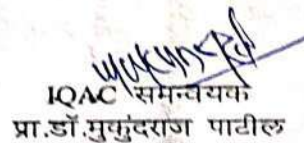 IQAC समन्वयक
प्रा.डॉ.मुकुंदराज पाटील